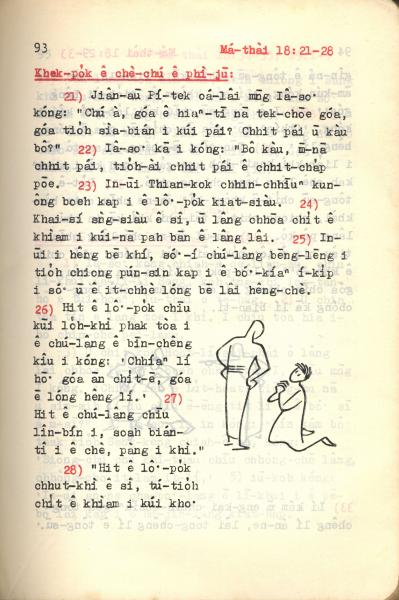 93 Má-thài 18:21-28
Khek-po̍k ê chè-chú ê phì-jū:
21) Jiân-āu Pí-tek oá-lâi mn̄g Iâ-so͘
kóng: "Chú à, góa ê hiaⁿ-tī nā tek-chōe góa,
góa tio̍h sià-bián i kúi pái? Chhit pái ū kàu
bô?" 22) Iâ-so͘ kā i kóng: "Bô kàu, m̄-nā
chhit pái, tio̍h-ài chhit pái ê chhit-cha̍p
pōe. 23) In-ūi Thian-kok chhin-chhiūⁿ kun-
ông boeh kap i ê lô͘-po̍k kiat-siàu. 24)
Khai-sí sǹg-siàu ê sî, ū lâng chhōa chi̍t ê
khiàm i kúi-nā pah bān ê lâng lâi. 25) In-
ūi i hêng bē khí, só͘-í chú-lâng bēng-lēng i
tio̍h chiong pún-sin kap i ê bó͘-kiáⁿ í-ki̍p
i só͘ ū ê it-chhè lóng bē lâi hêng-chè.
26) Hit ê lô͘-po̍k chīu
kūi lo̍h-khì phak tòa i
ê chú-lâng ê bīn-chêng
kîu i kóng: 'Chhíaⁿ lí
ho͘ góa ān chi̍t-ē, góa
ē lóng hêng lí.' 27)
Hit ê chú-lâng chīu
lîn-bín i, soah bián-
tî i ê chè, pàng i khì."
28) "Hit ê lô͘-po̍k
chhut-khì ê sî, tú-tio̍h
chi̍t ê khiàm i kúi kho͘